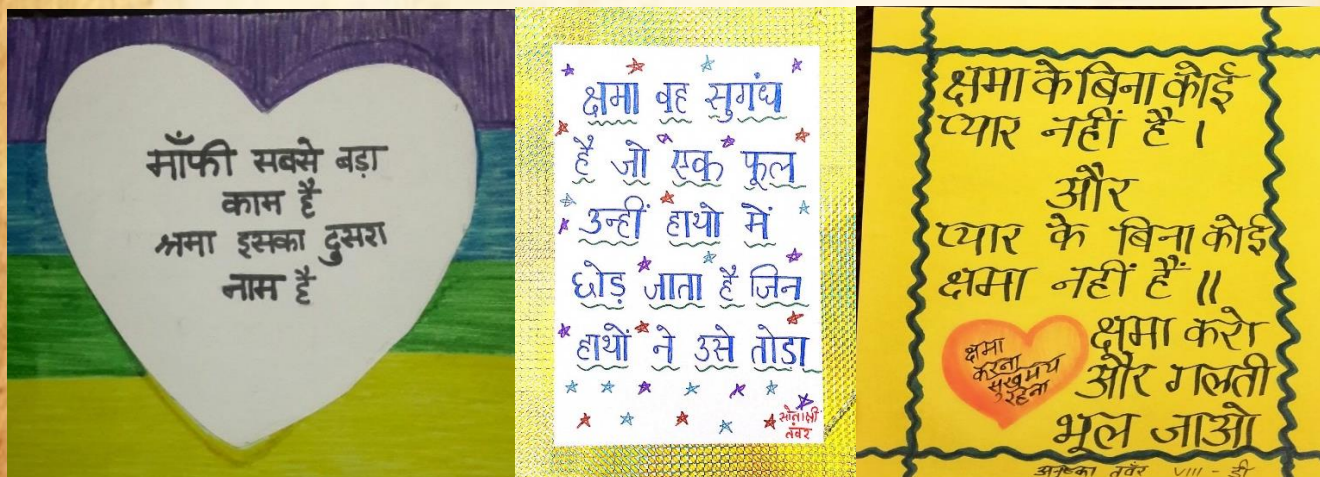 माँफी सबसे बड़ा
काम है
श्रमा इसका दुसरा
नाम है
क्षमा वह सुगंध
है जो एक फूल
उन्हीं हाथो में
छोड़ जाता है जिन
हाथों ने उसे तोडा
सोनाक्षी
तंवर
क्षमा के बिना कोई
प्यार नहीं है।
और
प्यार के बिना कोई
क्षमा नहीं हैं॥
क्षमा करो
और गलती
भूल जाओ
क्षमा
करना
सुखमय
रहना
अनुष्का तवँर VIII - डी